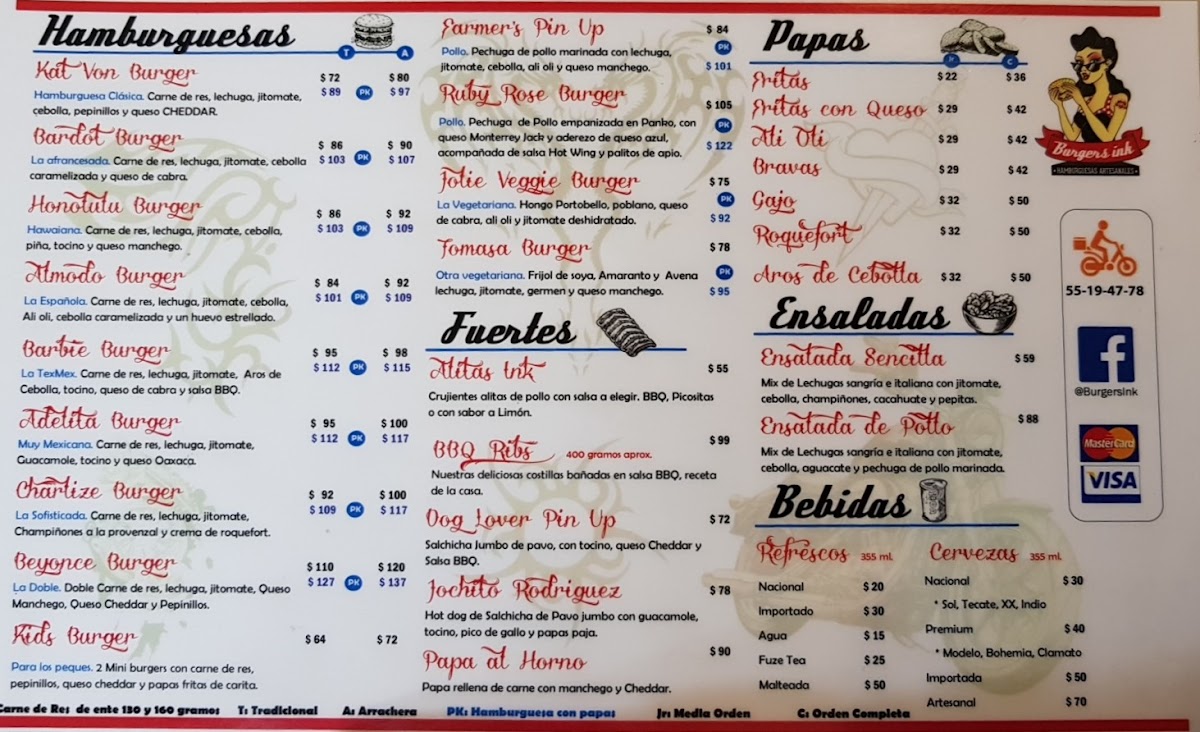 Hamburguesas
T A
Kat Von Burger $ 72 $ 80
Hamburguesa Clásica. Carne de res, lechuga, jitomate, $ 89 PK $ 97
cebolla, pepinillos y queso CHEDDAR.
Bardot Burger $ 86 $ 90
La afrancesada. Carne de res, lechuga, jitomate, cebolla $ 103 PK $ 107
caramelizada y queso de cabra.
Honolulu Burger $ 86 $ 92
Hawaiana. Carne de res, lechuga, jitomate, cebolla, $ 103 PK $ 109
piña, tocino y queso manchego.
Almodo Burger $ 84 $ 92
La Española. Carne de res, lechuga, jitomate, cebolla, $ 101 PK $ 109
Ali oli, cebolla caramelizada y un huevo estrellado.
Barbie Burger $ 95 $ 98
La TexMex. Carne de res, lechuga, jitomate, Aros de $ 112 PK $ 115
Cebolla, tocino, queso de cabra y salsa BBQ.
Adelita Burger $ 95 $ 100
Muy Mexicana. Carne de res, lechuga, jitomate, $ 112 PK $ 117
Guacamole, tocino y queso Oaxaca.
Charlize Burger $ 92 $ 100
La Sofisticada. Carne de res, lechuga, jitomate, $ 109 PK $ 117
Champiñones a la provenzal y crema de roquefort.
Beyonce Burger $ 110 $ 120
La Doble. Doble Carne de res, lechuga, jitomate, Queso $ 127 PK $ 137
Manchego, Queso Cheddar y Pepinillos.
Kids Burger $ 64 $ 72
Para los peques. 2 Mini burgers con carne de res,
pepinillos, queso cheddar y papas fritas de carita.
Farmer's Pin Up $ 84
Pollo. Pechuga de pollo marinada con lechuga, PK
jitomate, cebolla, ali oli y queso manchego. $ 101
Ruby Rose Burger $ 105
Pollo. Pechuga de Pollo empanizada en Panko, con PK
queso Monterrey Jack y aderezo de queso azul,
acompañada de salsa Hot Wing y palitos de apio. $ 122
Jolie Veggie Burger $ 75
La Vegetariana. Hongo Portobello, poblano, queso PK
de cabra, ali oli y jitomate deshidratado. $ 92
Tomasa Burger $ 78
Otra vegetariana. Frijol de soya, Amaranto y Avena PK
lechuga, jitomate, germen y queso manchego. $ 95
Fuertes
Alitas Ink $ 55
Crujientes alitas de pollo con salsa a elegir. BBQ, Picositas
o con sabor a Limón.
BBQ Ribs 400 gramos aprox. $ 99
Nuestras deliciosas costillas bañadas en salsa BBQ, receta
de la casa.
Dog Lover Pin Up $ 72
Salchicha Jumbo de pavo, con tocino, queso Cheddar y
Salsa BBQ.
Jochito Rodriguez $ 78
Hot dog de Salchicha de Pavo jumbo con guacamole,
tocino, pico de gallo y papas paja.
Papa al Horno $ 90
Papa rellena de carne con manchego y Cheddar.
Papas
Jr C
Fritas $ 22 $ 36
Fritas con Queso $ 29 $ 42
Ali Oli $ 29 $ 42
Bravas $ 29 $ 42
Gajo $ 32 $ 50
Roquefort $ 32 $ 50
Aros de Cebolla $ 32 $ 50
Ensaladas
Ensalada Sencilla $ 59
Mix de Lechugas sangría e italiana con jitomate,
cebolla, champiñones, cacahuate y pepitas.
Ensalada de Pollo $ 88
Mix de Lechugas sangría e italiana con jitomate,
cebolla, aguacate y pechuga de pollo marinada.
Bebidas
Refrescos 355 ml.
Nacional $ 20
Importado $ 30
Agua $ 15
Fuze Tea $ 25
Malteada $ 50
Cervezas 355 ml.
Nacional $ 30
* Sol, Tecate, XX, Indio
Premium $ 40
* Modelo, Bohemia, Clamato
Importada $ 50
Artesanal $ 70
Burgers ink
• HAMBURGUESAS ARTESANALES •
55-19-47-78
f
@BurgersInk
MasterCard
VISA
Carne de Res de ente 130 y 160 gramos T: Tradicional A: Arrachera PK: Hamburguesa con papas Jr: Media Orden C: Orden Completa